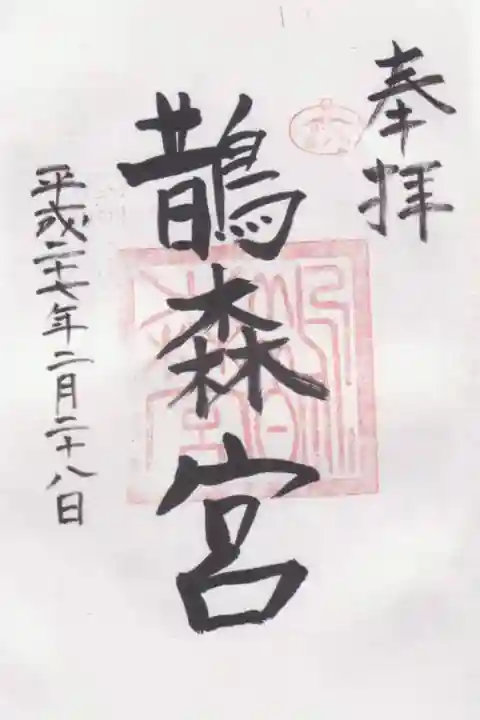 奉拝
鵲森宮
平成二十七年二月二十八日